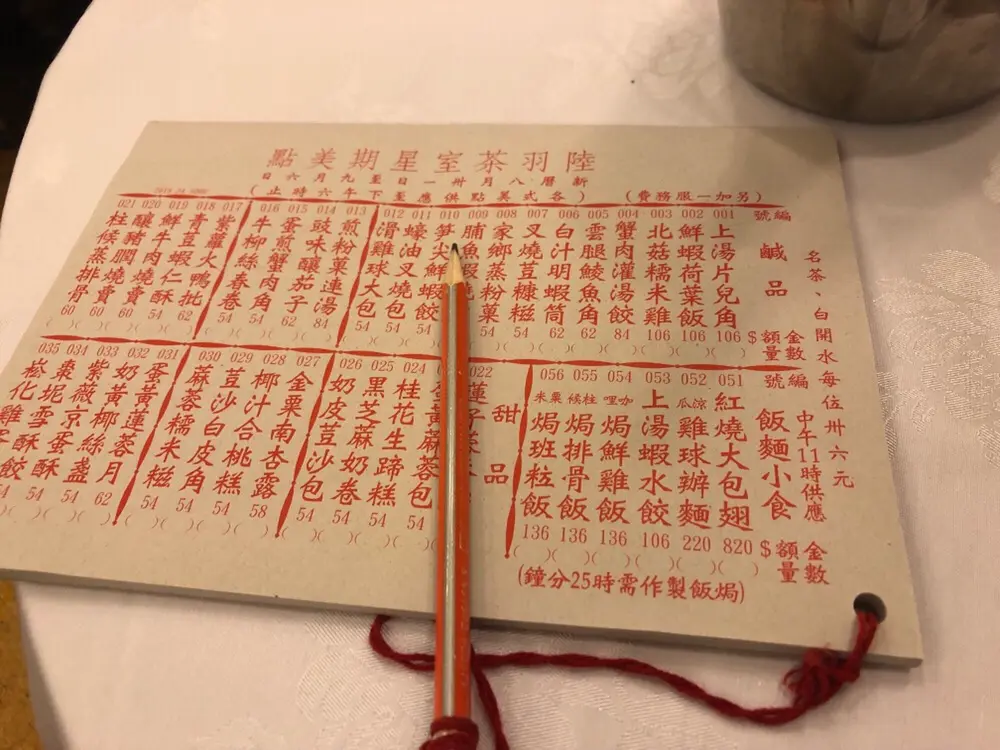 陸羽茶室星期美點
新曆八月卅一日至九月六日
(另加一服務費)
(各式美點供應至下午六時止)
名茶、白開水每位卅六元
中午11時供應
編號 鹹品 金額數量
001 上湯片兒角 $106
002 鮮蝦荷葉飯 106
003 北菇糯米雞 106
004 蟹肉灌湯餃 84
005 雲腿鯪魚角 62
006 白汁明蝦筒 62
007 叉燒荳糠糍 54
008 家鄉蒸粉菓 54
009 脯魚蝦 54
010 笋尖鮮蝦餃 54
011 蠔油叉燒包 54
012 滑雞球大包 54
013 煎粉菓連湯 84
014 豉味釀茄子 62
015 蛋煎蟹肉角 54
016 牛柳絲春卷 54
017 紫蘿火鴨批 62
018 青豆蝦仁酥 54
019 鮮牛肉燒賣 60
020 釀豬膶燒賣 60
021 柱候蒸排骨 60
編號 飯麵小食 金額數量
051 紅燒大包翅 $820
052 涼瓜雞球辦麵 220
053 上湯蝦水餃 106
054 咖哩焗鮮雞飯 136
055 柱候焗排骨飯 136
056 粟米焗班粒飯 136
(焗飯製作需時25分鐘)
甜品
022 蓮子
蛋黃麻蓉包 54
024 桂花生蹄糕 54
025 黑芝麻奶卷 54
026 奶皮荳沙包 54
027 金粟南杏露 58
028 椰汁合桃糕 54
029 荳沙白皮角 54
030 蔴蓉糯米糍 54
031 蛋黃蓮蓉月 62
032 奶黃椰絲盞 54
033 紫薇京蛋 54
034 棗坭雪酥 54
035 崧化雞 餃